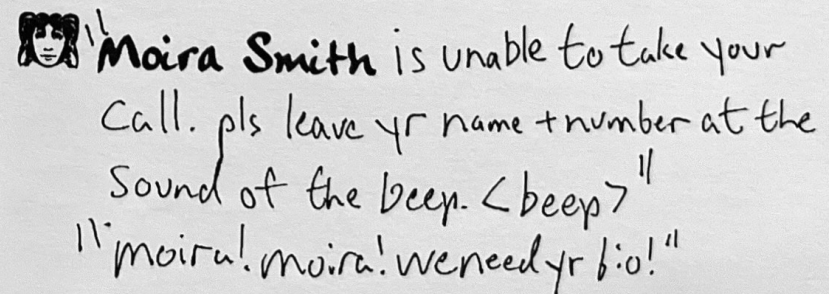 "Moira Smith is unable to take your
Call. pls leave yr name + number at the
Sound of the beep. <beep>"
"moira! moira! we need yr bio!"